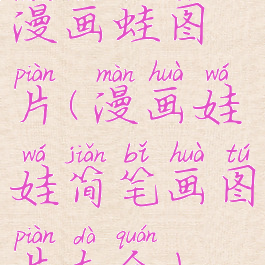 漫画蛙图
piàn màn huà wá
片(漫画娃
wá jiǎn bǐ huà tú
娃简笔画图
piàn dà quán
片大全)